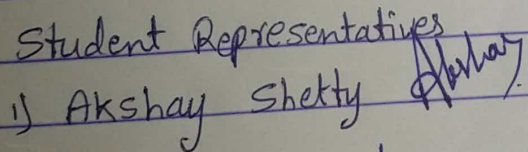 Student Representatives
1) Akshay Shetty Akshay